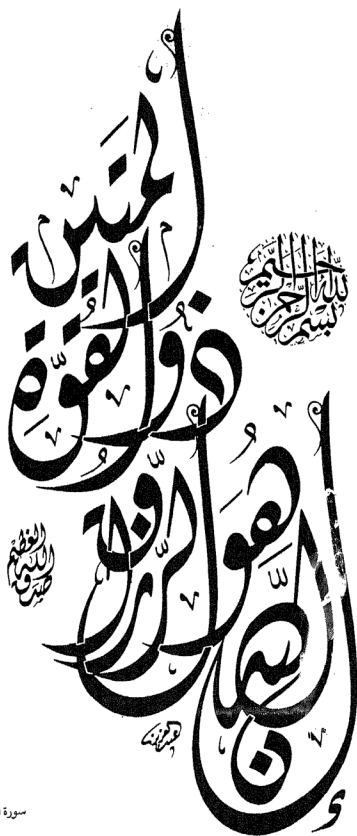 بسم الله الرحمن الرحيم
إن الله هو الرزاق
ذو القوة
المتين
صدق الله العظيم
سورة